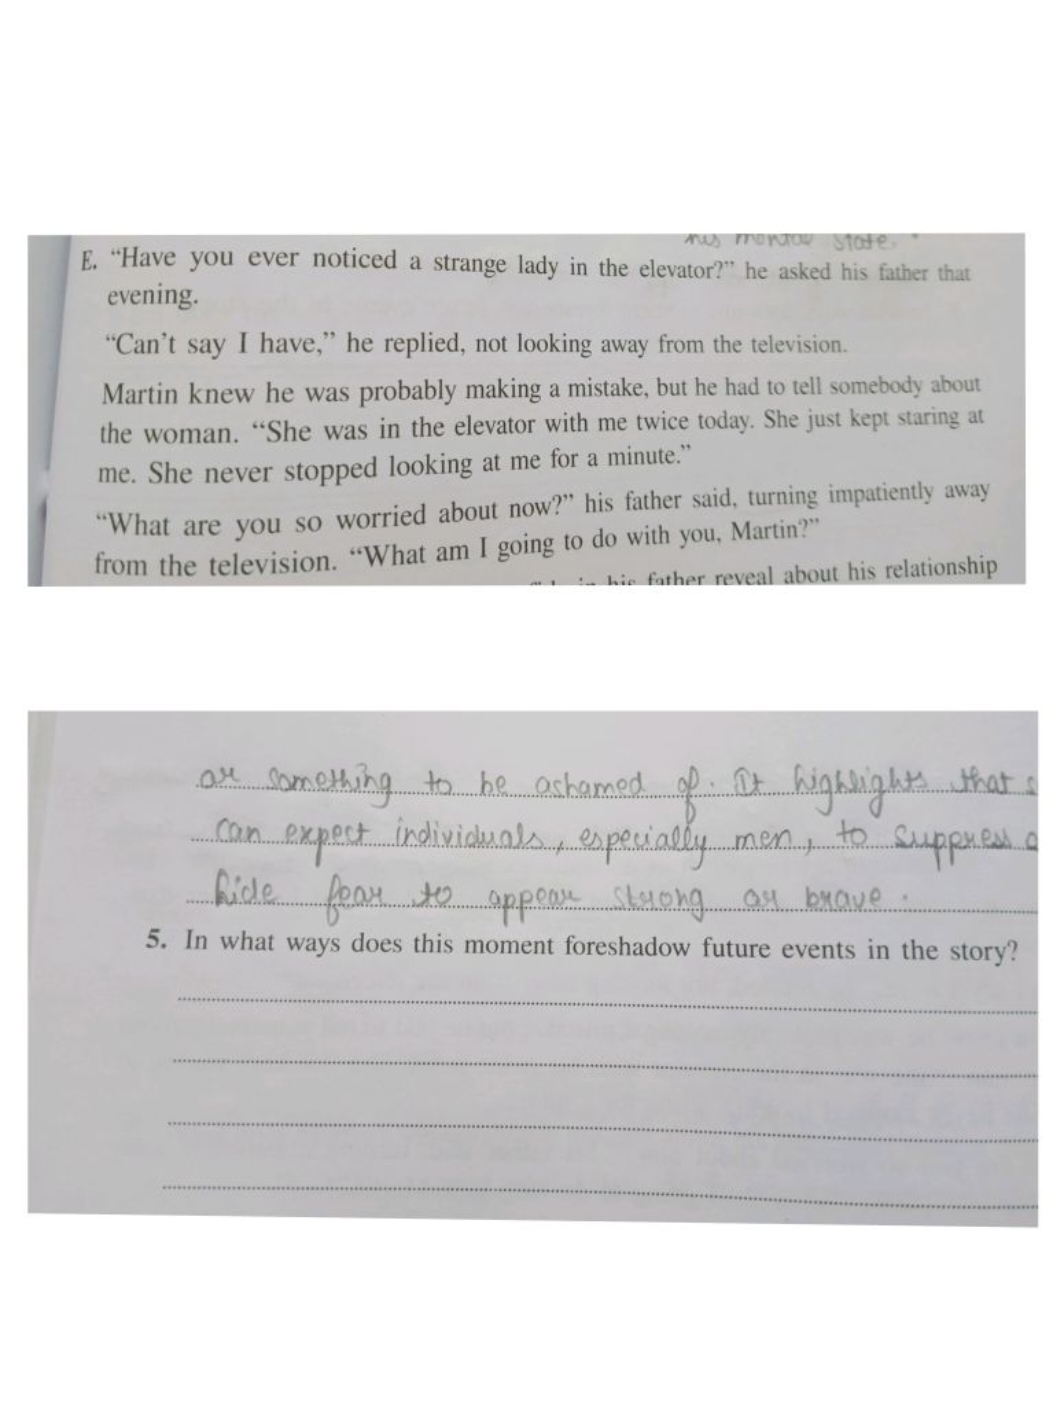 his mental state.
E. “Have you ever noticed a strange lady in the elevator?” he asked his father that
evening.
“Can’t say I have,” he replied, not looking away from the television.
Martin knew he was probably making a mistake, but he had to tell somebody about
the woman. “She was in the elevator with me twice today. She just kept staring at
me. She never stopped looking at me for a minute.”
“What are you so worried about now?” his father said, turning impatiently away
from the television. “What am I going to do with you, Martin?”
his father reveal about his relationship
or something to be ashamed of. It highlights that
can expect individuals, especially men, to suppress
hide fear to appear strong or brave.
5. In what ways does this moment foreshadow future events in the story?